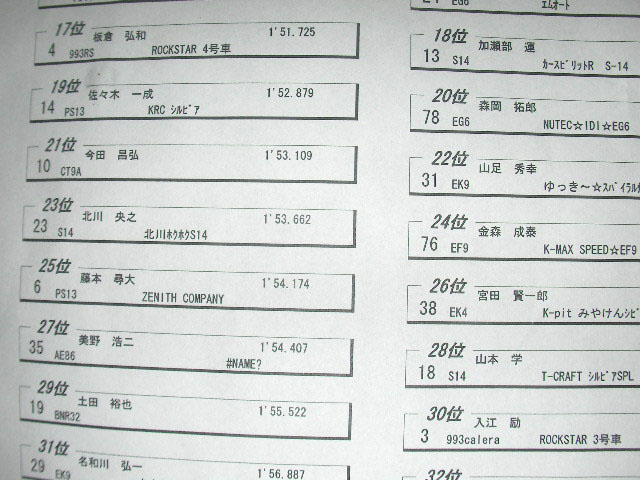 17位
板倉 弘和 1'51.725
4 993RS ROCKSTAR 4号車
19位
佐々木 一成 1'52.879
14 PS13 KRC ｼﾙﾋﾞｱ
21位
今田 昌弘 1'53.109
10 CT9A
23位
北川 央之 1'53.662
23 S14 北川ﾎｸﾎｸS14
25位
藤本 尋大 1'54.174
6 PS13 ZENITH COMPANY
27位
美野 浩二 1'54.407
35 AE86 #NAME?
29位
土田 裕也 1'55.522
19 BNR32
31位
名和川 弘一 1'56.887
29 EK9
EG6 ｴﾑｵｰﾄ
18位
加瀬部 運
13 S14 ｶｰｽﾋﾟﾘｯﾄR S-14
20位
森岡 拓郎
78 EG6 NUTEC☆IDI☆EG6
22位
山足 秀幸
31 EK9 ゆっき～☆ｽﾊﾟｲﾗﾙ
24位
金森 成泰
76 EF9 K-MAX SPEED☆EF9
26位
宮田 賢一郎
38 EK4 K-pit みやけんｼﾋﾞ
28位
山本 学
18 S14 T-CRAFT ｼﾙﾋﾞｱSPL
30位
入江 励
3 993calera ROCKSTAR 3号車
32位